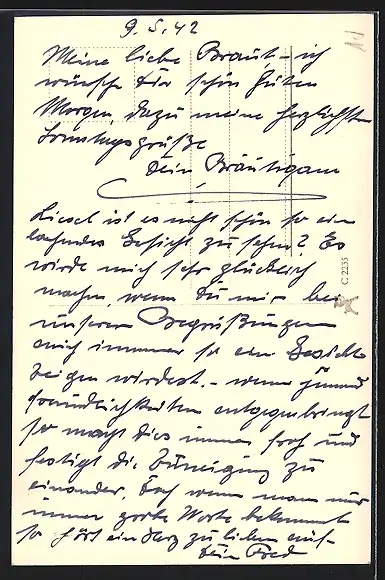 9. 5. 42
Meine liebe Braut – ich
wünsche Dir schön guten
Morgen, dazu meine herzlichsten
Sonntagsgrüße
Dein Bräutigam
Liesel ist es nicht schön so ein
lachendes Gesicht zu sehen? Es
würde mich sehr glücklich
machen, wenn Du mir bei
unseren Begrüßungen
auch immer so ein Gesicht
zeigen würdest. – wenn jemand
Freundlichkeiten entgegenbringt
so macht dies immer froh und
festigt die Zuneigung zu
einander. Doch wenn man nur
immer Worte bekommt
so hört ein Herz zu lieben auf –
Dein Fred
C 2235